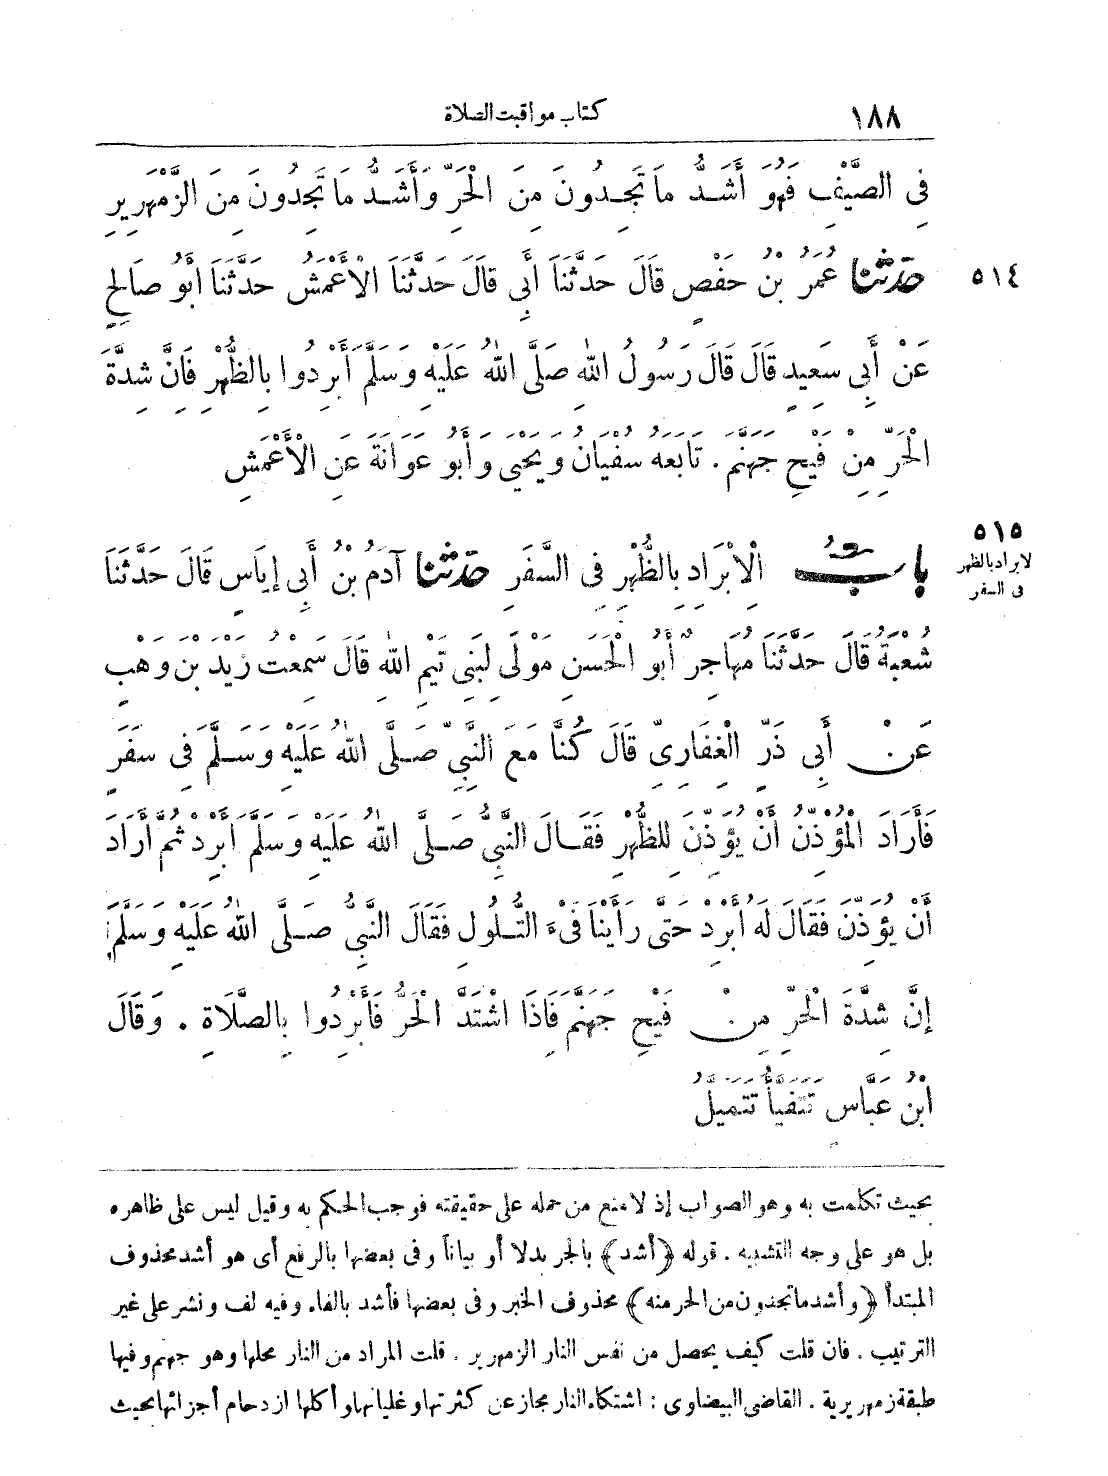 ١٨٨ كتاب مواقيت الصلاة
فِى الصَّيْفِ فَهُوَ أَشَدُّ مَا تَجِدُونَ مِنَ الْحَرِّ وَأَشَدُّ مَا تَجِدُونَ مِنَ الزَّمْهَرِيرِ
٥١٤ حَدَّثَنَا عُمَرُ بْنُ حَفْصٍ قَالَ حَدَّثَنَا أَبِى قَالَ حَدَّثَنَا الْأَعْمَشُ حَدَّثَنَا أَبُو صَالِحٍ
عَنْ أَبِى سَعِيدٍ قَالَ قَالَ رَسُولُ اللهِ صَلَّى اللهُ عَلَيْهِ وَسَلَّمَ أَبْرِدُوا بِالظُّهْرِ فَإِنَّ شِدَّةَ
الْحَرِّ مِنْ فَيْحِ جَهَنَّمَ . تَابَعَهُ سُفْيَانُ وَيَحْيَى وَأَبُو عَوَانَةَ عَنِ الْأَعْمَشِ
٥١٥
لابراد بالظهر
فى السفر
بَابُ الْإِبْرَادِ بِالظُّهْرِ فِى السَّفَرِ حَدَّثَنَا آدَمُ بْنُ أَبِى إِيَاسٍ قَالَ حَدَّثَنَا
شُعْبَةُ قَالَ حَدَّثَنَا مُهَاجِرٌ أَبُو الْحَسَنِ مَوْلًى لِبَنِى تَيْمِ اللهِ قَالَ سَمِعْتُ زَيْدَ بْنَ وَهْبٍ
عَنْ أَبِى ذَرٍّ الْغِفَارِىِّ قَالَ كُنَّا مَعَ النَّبِىِّ صَلَّى اللهُ عَلَيْهِ وَسَلَّمَ فِى سَفَرٍ
فَأَرَادَ الْمُؤَذِّنُ أَنْ يُؤَذِّنَ لِلظُّهْرِ فَقَالَ النَّبِىُّ صَلَّى اللهُ عَلَيْهِ وَسَلَّمَ أَبْرِدْ ثُمَّ أَرَادَ
أَنْ يُؤَذِّنَ فَقَالَ لَهُ أَبْرِدْ حَتَّى رَأَيْنَا فَىْءَ التُّلُولِ فَقَالَ النَّبِىُّ صَلَّى اللهُ عَلَيْهِ وَسَلَّمَ
إِنَّ شِدَّةَ الْحَرِّ مِنْ فَيْحِ جَهَنَّمَ فَإِذَا اشْتَدَّ الْحَرُّ فَأَبْرِدُوا بِالصَّلَاةِ . وَقَالَ
ابْنُ عَبَّاسٍ تَتَفَيَّأُ تَتَمَيَّلُ
بحيث تكلمت به وهو الصواب إذ لا منع من حمله على حقيقته فوجب الحكم به وقيل ليس على ظاهره
بل هو على وجه التشبيه . قوله ﴿أشد﴾ بالجر بدلا أو بياناً وفى بعضها بالرفع أى هو أشد محذوف
المبتدأ ﴿وأشد ما تجدون من الحر منه﴾ محذوف الخبر وفى بعضها فأشد بالفاء وفيه لف ونشر على غير
الترتيب . فان قلت كيف يحصل من نفس النار الزمهرير . قلت المراد من النار محلها وهو جهنم وفيها
طبقة زمهريرية . القاضى البيضاوى : اشتكاء النار مجاز عن كثرتها وغليانها وأكلها ازدحام أجزائها بحيث